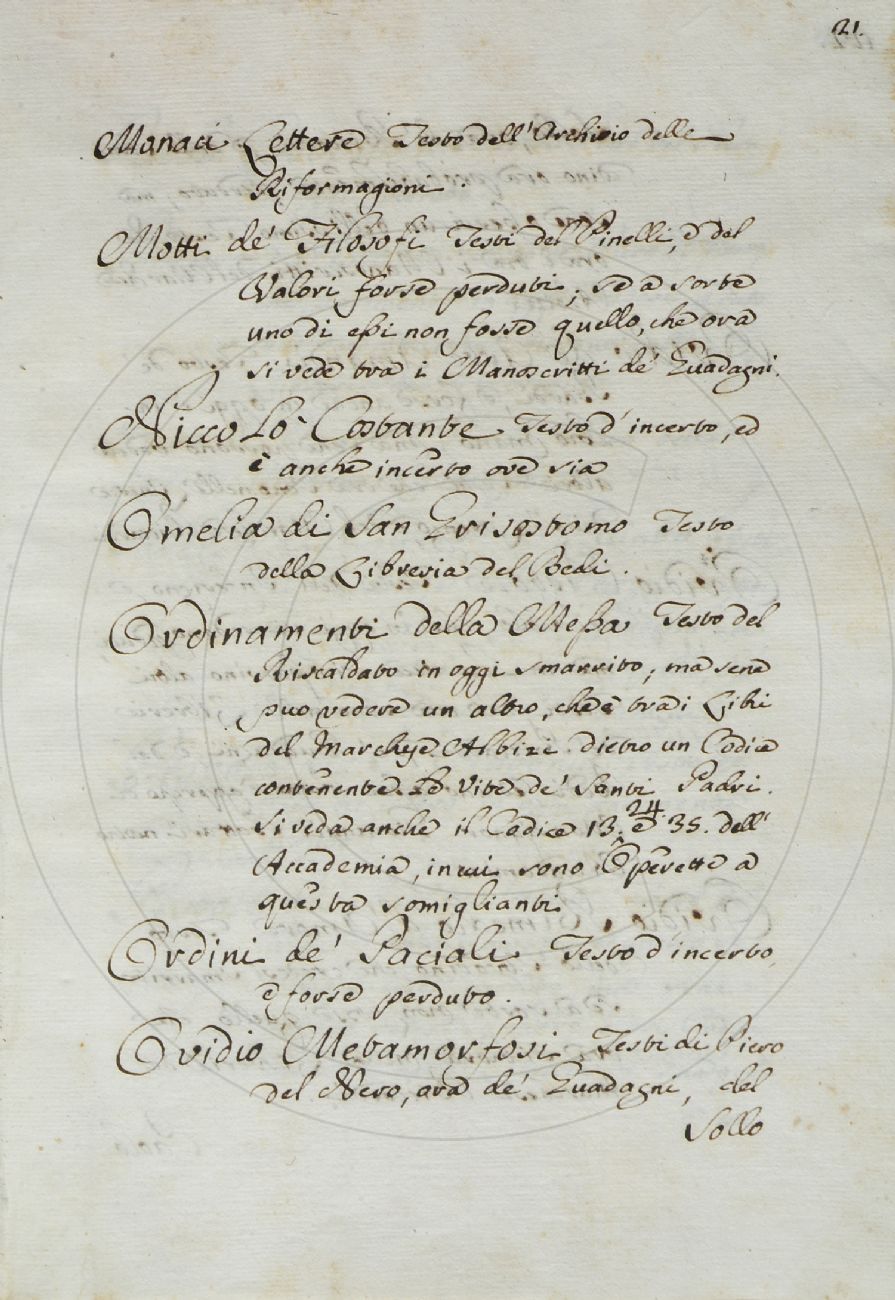 21.
Monaci Lettere Testo dell'Archivio delle
Riformagioni.
Motti de' Filosofi Testi del Pinelli, e del
Valori, forse perduti; se a sorte
uno di essi non fosse quello, che ora
si vede tra i Manoscritti de' Guadagni.
Niccolò Costante Testo d'incerto, ed
è anche incerto ove sia
Omelia di San Grisostomo Testo
della Libreria del Redi.
Ordinamenti della Messa Testo del
Riscaldato in oggi smarrito; ma sene
può vedere un altro, che è tra i Libri
del Marchese Albizi dietro un Codice
contenente le Vite de' Santi Padri.
Si veda anche il Codice 13. 24 e 35. dell'
Accademia, in cui sono Operette a
questa somiglianti.
Ordini de' Paciali Testo d'incerto,
e forse perduto.
Ovidio Metamorfosi Testi di Piero
del Nero, ora de' Guadagni, del
Sollo